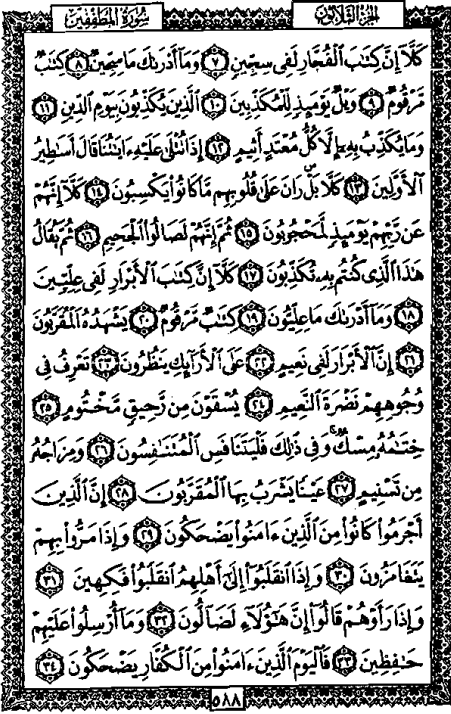 الجزء الثلاثون
سورة المطففين
كَلَّآ إِنَّ كِتَٰبَ ٱلْفُجَّارِ لَفِى سِجِّينٍ ٧ وَمَآ أَدْرَىٰكَ مَا سِجِّينٌ ٨ كِتَٰبٌ
مَّرْقُومٌ ٩ وَيْلٌ يَوْمَئِذٍ لِّلْمُكَذِّبِينَ ١٠ ٱلَّذِينَ يُكَذِّبُونَ بِيَوْمِ ٱلدِّينِ ١١
وَمَا يُكَذِّبُ بِهِۦٓ إِلَّا كُلُّ مُعْتَدٍ أَثِيمٍ ١٢ إِذَا تُتْلَىٰ عَلَيْهِ ءَايَٰتُنَا قَالَ أَسَٰطِيرُ
ٱلْأَوَّلِينَ ١٣ كَلَّا بَلْ رَانَ عَلَىٰ قُلُوبِهِم مَّا كَانُوا۟ يَكْسِبُونَ ١٤ كَلَّآ إِنَّهُمْ
عَن رَّبِّهِمْ يَوْمَئِذٍ لَّمَحْجُوبُونَ ١٥ ثُمَّ إِنَّهُمْ لَصَالُوا۟ ٱلْجَحِيمِ ١٦ ثُمَّ يُقَالُ
هَٰذَا ٱلَّذِى كُنتُم بِهِۦ تُكَذِّبُونَ ١٧ كَلَّآ إِنَّ كِتَٰبَ ٱلْأَبْرَارِ لَفِى عِلِّيِّينَ
١٨ وَمَآ أَدْرَىٰكَ مَا عِلِّيُّونَ ١٩ كِتَٰبٌ مَّرْقُومٌ ٢٠ يَشْهَدُهُ ٱلْمُقَرَّبُونَ
٢١ إِنَّ ٱلْأَبْرَارَ لَفِى نَعِيمٍ ٢٢ عَلَى ٱلْأَرَآئِكِ يَنظُرُونَ ٢٣ تَعْرِفُ فِى
وُجُوهِهِمْ نَضْرَةَ ٱلنَّعِيمِ ٢٤ يُسْقَوْنَ مِن رَّحِيقٍ مَّخْتُومٍ ٢٥
خِتَٰمُهُۥ مِسْكٌ وَفِى ذَٰلِكَ فَلْيَتَنَافَسِ ٱلْمُتَنَٰفِسُونَ ٢٦ وَمِزَاجُهُۥ
مِن تَسْنِيمٍ ٢٧ عَيْنًا يَشْرَبُ بِهَا ٱلْمُقَرَّبُونَ ٢٨ إِنَّ ٱلَّذِينَ
أَجْرَمُوا۟ كَانُوا۟ مِنَ ٱلَّذِينَ ءَامَنُوا۟ يَضْحَكُونَ ٢٩ وَإِذَا مَرُّوا۟ بِهِمْ
يَتَغَامَزُونَ ٣٠ وَإِذَا ٱنقَلَبُوٓا۟ إِلَىٰٓ أَهْلِهِمُ ٱنقَلَبُوا۟ فَكِهِينَ ٣١
وَإِذَا رَأَوْهُمْ قَالُوٓا۟ إِنَّ هَٰٓؤُلَآءِ لَضَآلُّونَ ٣٢ وَمَآ أُرْسِلُوا۟ عَلَيْهِمْ
حَٰفِظِينَ ٣٣ فَٱلْيَوْمَ ٱلَّذِينَ ءَامَنُوا۟ مِنَ ٱلْكُفَّارِ يَضْحَكُونَ ٣٤
٥٨٨